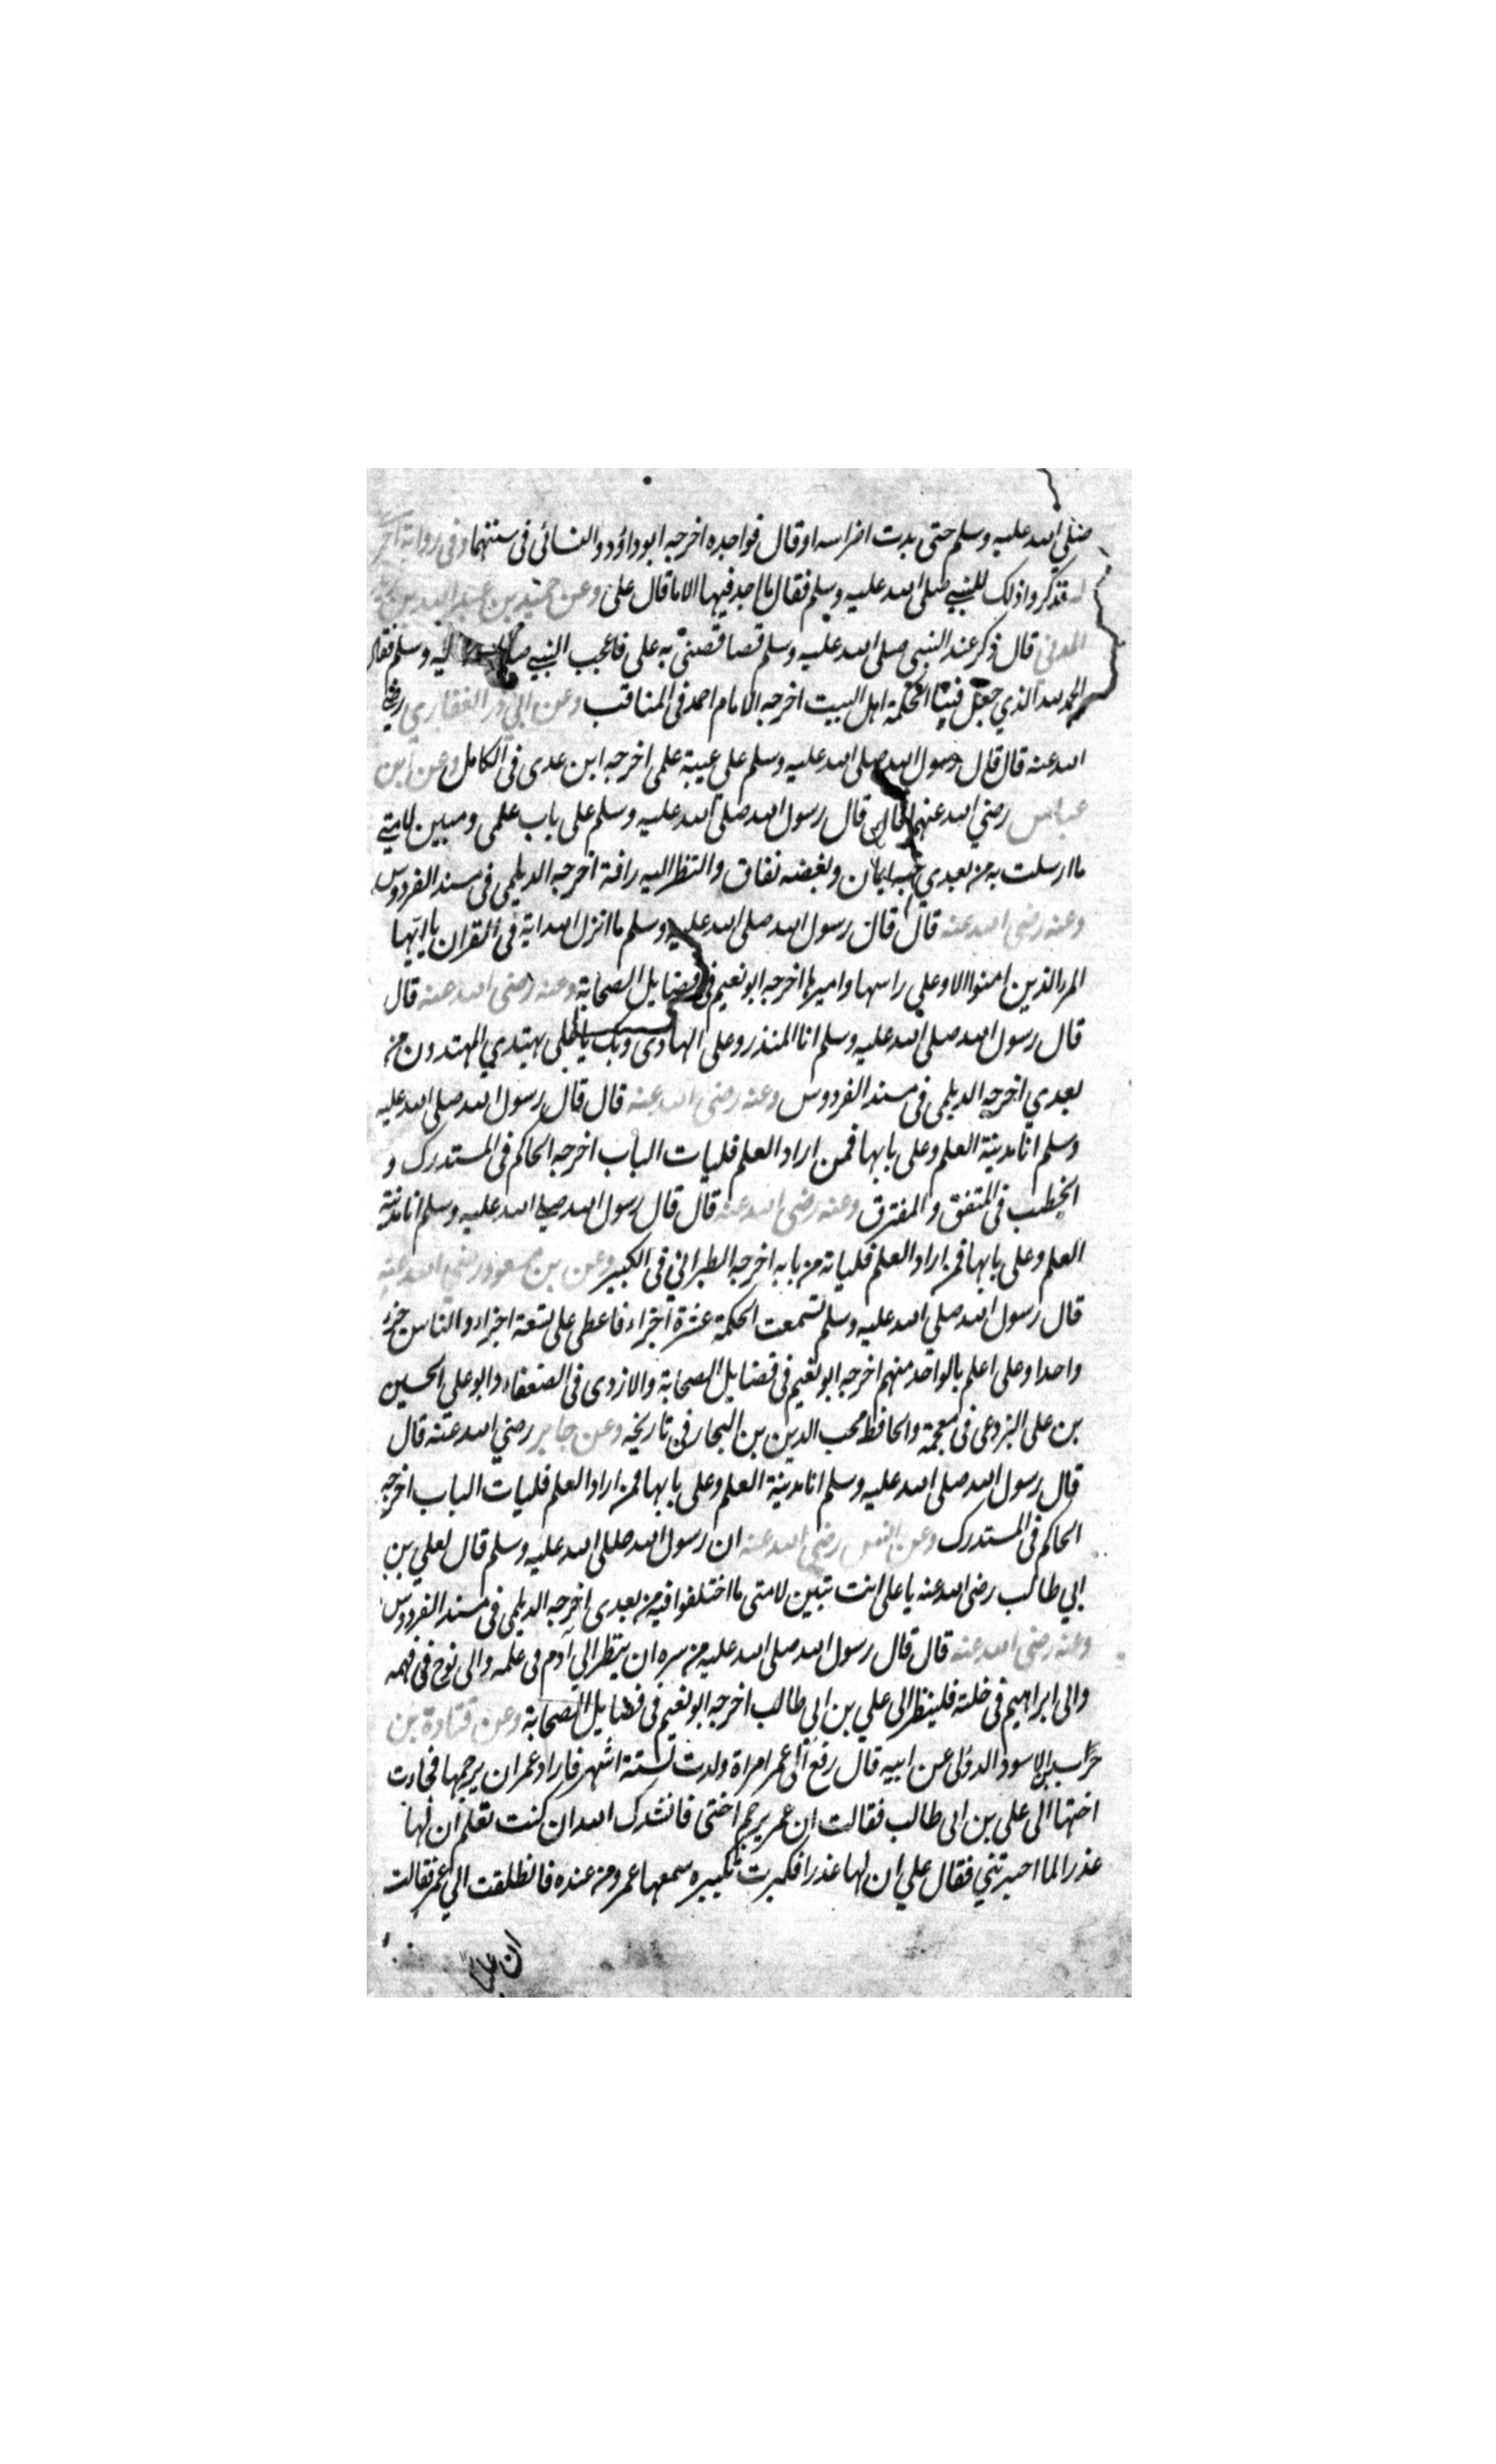 صلي الله عليه وسلم حتى بدت اضراسه او قال نواجده اخرجه ابو داؤد والنسائى فى سننهما وفى رواية اخرى
له فذكروا ذلك للنبي صلى الله عليه وسلم فقال ما اجد فيها الا ما قال على وعن حميد بن عبد الله بن
المدنى قال ذكر عند النبى صلى الله عليه وسلم قضا قضى به على فاعجب النبي ليه وسلم فقال
الحمد لله الذي جعل فينا الحكمة اهل البيت اخرجه الامام احمد فى المناقب وعن ابي ذر الغفاري رضي
الله عنه قال قال رسول الله صلى الله عليه وسلم على عيبة علمى اخرجه ابن عدى فى الكامل وعن ابن
عباس رضي الله عنهما قال قال رسول الله صلى الله عليه وسلم على باب علمى ومبين لامتي
ما ارسلت به من بعدي حبه ايمان وبغضه نفاق والنظر اليه رافة اخرجه الديلمى فى مسند الفردوس
وعنه رضى الله عنه قال قال رسول الله صلى الله عليه وسلم ما انزل الله اية فى القران يا ايها
الذين امنوا الا وعلى راسها واميرها اخرجه ابو نعيم فى فضايل الصحابة وعنه رضى الله عنه قال
قال رسول الله صلى الله عليه وسلم انا المنذر وعلى الهادى وبك يا على يهتدي المهتدون من
بعدي اخرجه الديلمى فى مسند الفردوس وعنه رضى الله عنه قال قال رسول الله صلى الله عليه
وسلم انا مدينة العلم وعلى بابها فمن اراد العلم فليات الباب اخرجه الحاكم فى المستدرك و
الخطيب فى المتفق والمفترق وعنه رضى الله عنه قال قال رسول الله صلى الله عليه وسلم انا مدينة
العلم وعلى بابها فمن اراد العلم فلياته من بابه اخرجه الطبرانى فى الكبير وعن بن مسعود رضي الله عنه
قال رسول الله صلي الله عليه وسلم قسمت الحكمة عشرة اجزاء فاعطى على تسعة اجزاء والناس جزء
واحدا وعلى اعلم بالواحد منهم اخرجه ابو نعيم فى فضايل الصحابة والازدى فى الضعفاء وابو على الحسين
بن على البزدعى فى معجمة والحافظ محب الدين بن النجار فى تاريخه وعن جابر رضي الله عنه قال
قال رسول الله صلى الله عليه وسلم انا مدينة العلم وعلى بابها فمن اراد العلم فليات الباب اخرجه
الحاكم فى المستدرك وعن انس رضى الله عنه ان رسول الله صلى الله عليه وسلم قال لعلي بن
ابي طالب رضى الله عنه يا على انت تبين لامتى ما اختلفوا فيه من بعدى اخرجه الديلمى فى مسند الفردوس
وعنه رضى الله عنه قال قال رسول الله صلى الله عليه من سره ان ينظر الي آدم فى علمه والى نوح فى فهمه
والى ابراهيم فى خلته فلينظر الى علي بن ابي طالب اخرجه ابو نعيم فى فضايل الصحابة وعن قتادة بن
الاسود الدؤلى عن ابيه قال رفع الى عمر امراة ولدت لستة اشهر فاراد عمر ان يرجمها فجاءت
اختها الى على بن ابى طالب فقالت ان عمر يرجم اختى فانشدك الله ان كنت تعلم ان لها
عذرا لما اخبرتني فقال علي ان لها عذرا فكبرت تكبيره سمعها عمر ومن عنده فانطلقت الي عمر فقالت
ان عليا